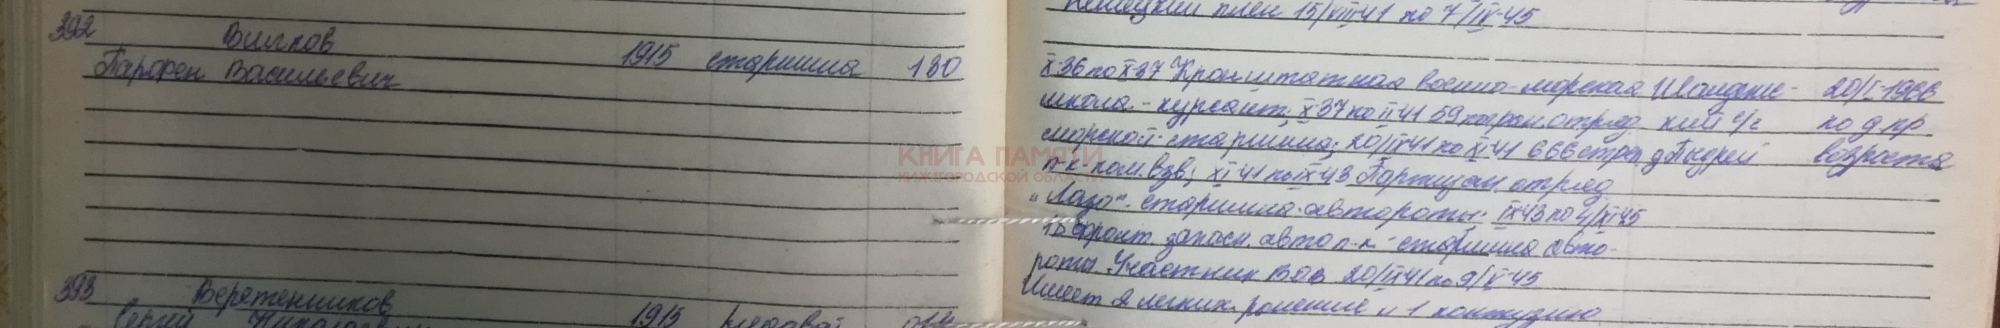 Немецкий плен 15/VIII 41 по 7/IV-45
392 Вилков
Парфен Василиевич 1915 старшина 130
X-36 по X-37 Кронштатная военно-морская 20/I-1966
школа - курсант; X-37 по II 41 59 погран. отряд по д. пр.
морской - старшина; 20/IX 41 по XI 41 666 стрел. возраста
п-к пом. взв; XI 41 по IX 43 Партизан. отряд
"Лазо" - старшина автороты; IX 43 по 4/XI 45
15 фронт. запасн. авто п-к - старшина авто-
роты. Участник ВОВ 20/IX 41 по 9/V-45
Имеет 2 легких ранение и 1 контузию
393 Веретенников
Сергей Николаевич 1915 рядовой
КНИГА ПАМЯТИ
НИЖЕГОРОДСКОЙ ОБЛАСТИ